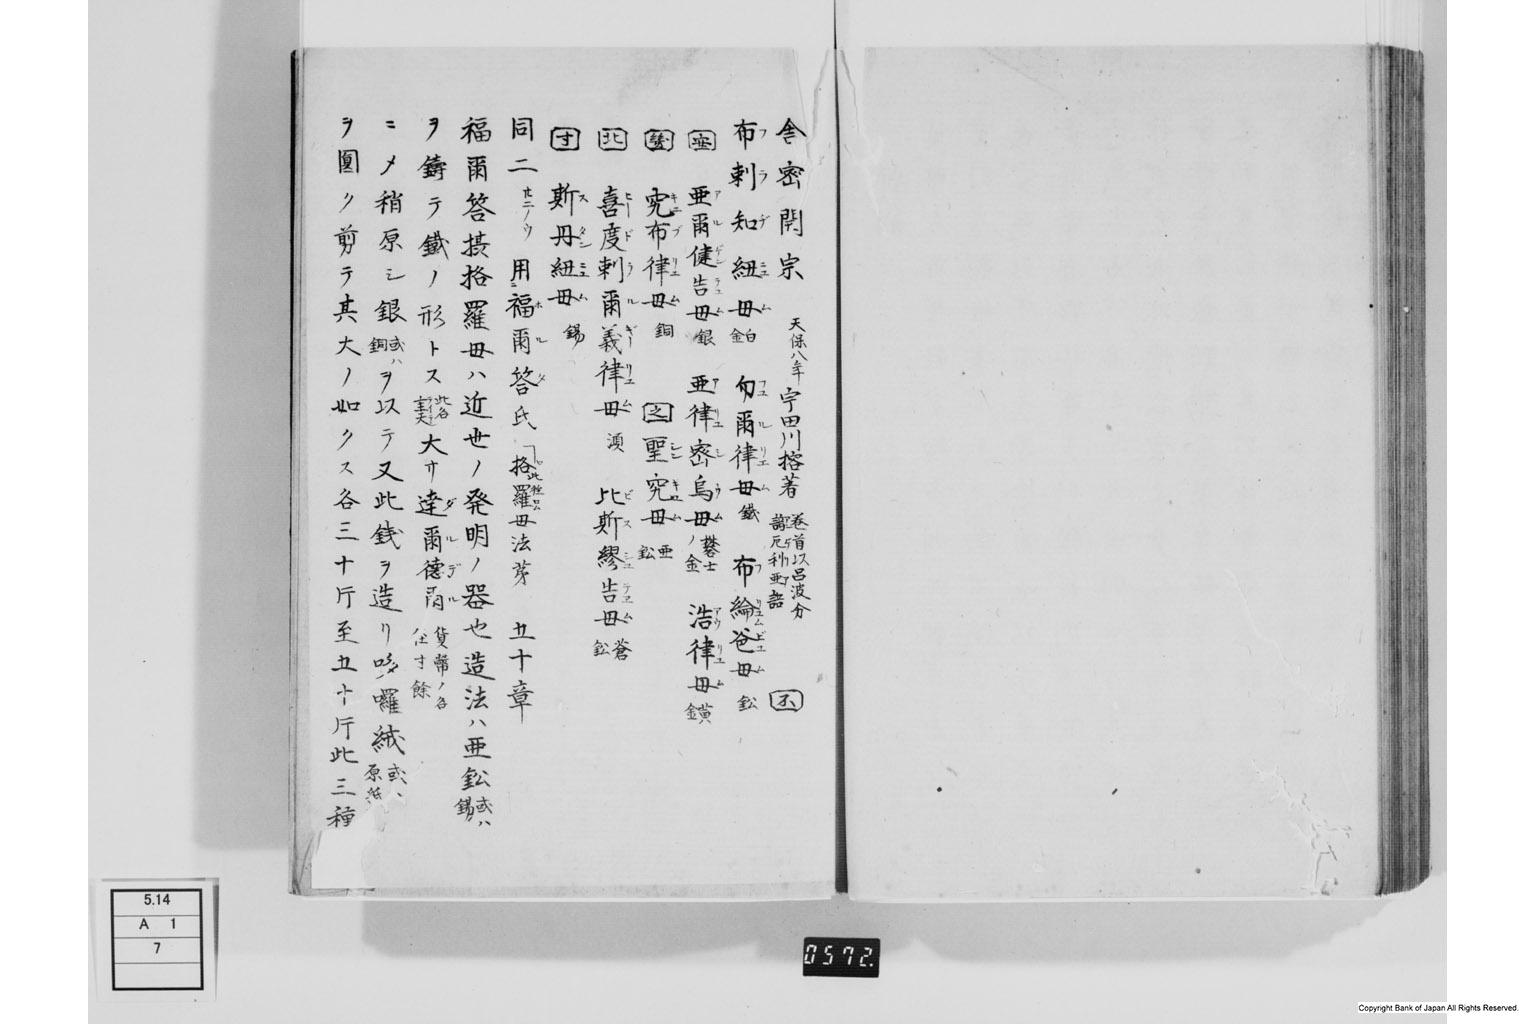 舎密開宗 天保八年 宇田川榕著 巻首以呂波分 謁厄利亜語 不
布剌知紐母 白金 勿爾律母 鐵 布綸爸母 鉛
亜 亜爾健告母 銀 亜律密烏母 礬士ノ金 浩律母 黄金
究布律母 銅 之 聖究母 亜鉛
喜度剌爾義律母 澒 比斯繆告母 蒼鉛
斯丹紐母 錫
同二 用福爾答氏 格羅母法 五十章
福爾答攅格羅母ハ近世ノ発明ノ器也造法ハ亜鉛或ハ錫
ヲ鋳テ鐵ノ形トス 大サ達爾德爾 貨幣ノ名 径寸餘
ニメ稍原シ銀或ハ銅ヲ以テ又此銭ヲ造リ 囉絨或ハ原
ヲ圓ク剪テ其大ノ如クス各三十斤至五十斤此三種
5.14
A 1
7
0572.
Copyright Bank of Japan All Rights Reserved.